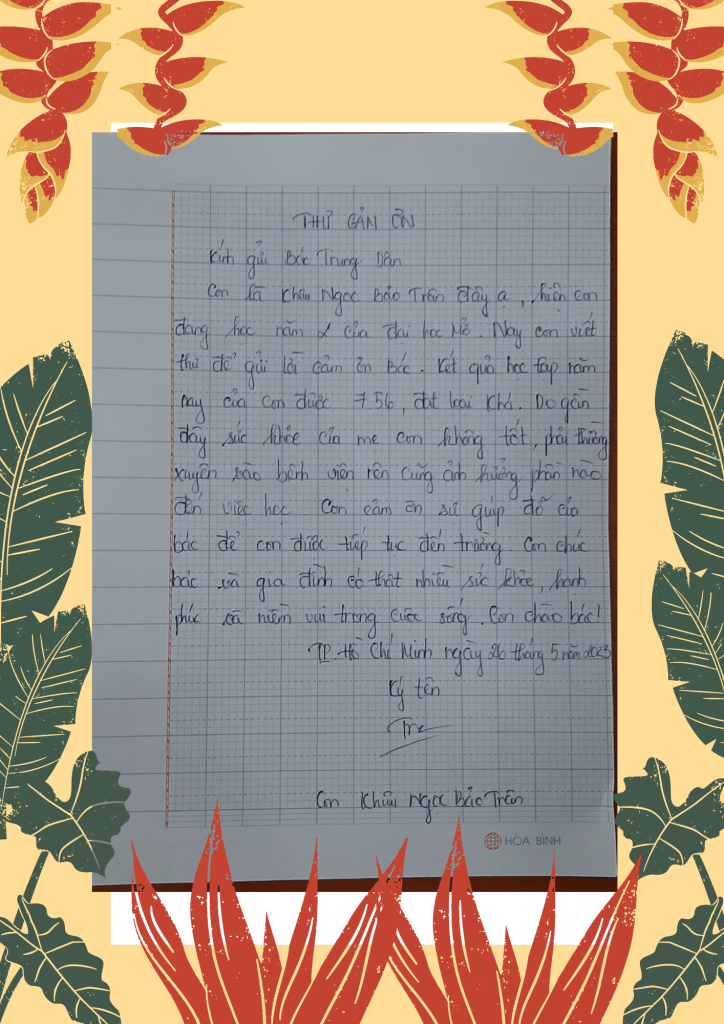 THƯ CẢM ƠN
Kính gửi Bác Trung Dân
Con là Khưu Ngọc Bảo Trân đây ạ, hiện con
đang học năm 2 của đại học Mở. Nay con viết
thư để gửi lời cảm ơn Bác. Kết quả học tập năm
nay của con được 7.56, đạt loại Khá. Do gần
đây sức khỏe của mẹ con không tốt, phải thường
xuyên vào bệnh viện nên cũng ảnh hưởng phần nào
đến việc học. Con cảm ơn sự giúp đỡ của
bác để con được tiếp tục đến trường. Con chúc
bác và gia đình có thật nhiều sức khỏe, hạnh
phúc và niềm vui trong cuộc sống. Con chào bác!
TP. Hồ Chí Minh ngày 26 tháng 5 năm 2023
Ký tên
Con Khưu Ngọc Bảo Trân
HÒA BÌNH